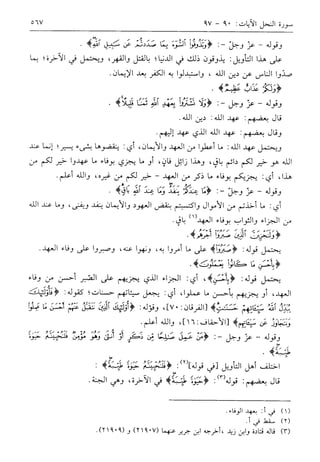 سورة النحل الآيات: ٩٠ - ٩٧
٥٦٧
وقوله - عزّ وجلّ -: ﴿وَتَذُوقُوا السُّوءَ بِمَا صَدَدتُّمْ عَن سَبِيلِ اللَّهِ﴾.
على هذا التأويل: يذوقون ذلك في الدنيا؛ بالقتل والقهر، ويحتمل في الآخرة؛ بما
صدّوا الناس عن دين الله، واستبدلوا به الكفر بعد الإيمان.
﴿وَلَكُمْ عَذَابٌ عَظِيمٌ﴾.
وقوله - عز وجل -: ﴿وَلَا تَشْتَرُوا بِعَهْدِ اللَّهِ ثَمَنًا قَلِيلًا﴾.
قال بعضهم: عهد الله: دين الله.
وقال بعضهم: عهد الله الذي عهد إليهم.
ويحتمل عهد الله: ما أعطوا من العهد والأيمان، أي: ينقضوها بشيء يسير؛ إنما عند
الله هو خير لكم دائم باق، وهذا زائل فانٍ، أو ما يجزي بوفاء ما عهدوا خير لكم من
هذا، أي: يجزيكم بوفاء ما ذكر من العهد - خير لكم من غيره، والله أعلم.
وقوله - عز وجل -: ﴿مَا عِندَكُمْ يَنفَدُ وَمَا عِندَ اللَّهِ بَاقٍ﴾.
أي: ما أخذتم من الأموال واكتسبتم بنقض العهود والأيمان ينفد ويفنى، وما عند الله
من الجزاء والثواب بوفاء العهد(١) باقٍ.
﴿وَلَنَجْزِيَنَّ الَّذِينَ صَبَرُوا أَجْرَهُم﴾.
يحتمل قوله: ﴿صَبَرُوا﴾ على ما أمروا به، ونهوا عنه، وصبروا على وفاء العهد.
﴿بِأَحْسَنِ مَا كَانُوا يَعْمَلُونَ﴾.
يحتمل قوله: ﴿بِأَحْسَنِ﴾، أي: الجزاء الذي يجزيهم على الصبر أحسن من وفاء
العهد، أو يجزيهم بأحسن ما عملوا، أي: يجعل سيئاتهم حسنات؛ كقوله: ﴿فَأُولَئِكَ
يُبَدِّلُ اللَّهُ سَيِّئَاتِهِمْ حَسَنَاتٍ﴾ [الفرقان: ٧٠]، وقوله: ﴿أُولَئِكَ الَّذِينَ نَتَقَبَّلُ عَنْهُمْ أَحْسَنَ مَا عَمِلُوا
وَنَتَجَاوَزُ عَن سَيِّئَاتِهِمْ﴾ [الأحقاف: ١٦]، والله أعلم.
وقوله - عز وجل -: ﴿مَنْ عَمِلَ صَالِحًا مِّن ذَكَرٍ أَوْ أُنثَى وَهُوَ مُؤْمِنٌ فَلَنُحْيِيَنَّهُ حَيَاةً
طَيِّبَةً﴾.
اختلف أهل التأويل [في قوله](٢): ﴿فَلَنُحْيِيَنَّهُ حَيَاةً طَيِّبَةً﴾:
قال بعضهم: قوله(٣): ﴿حَيَاةً طَيِّبَةً﴾ في الآخرة، وهي الجنة.
(١) في أ: بعهد الوفاء.
(٢) سقط في أ.
(٣) قاله قتادة وابن زيد، أخرجه ابن جرير عنهما (٢١٩٠٧) و (٢١٩٠٩).